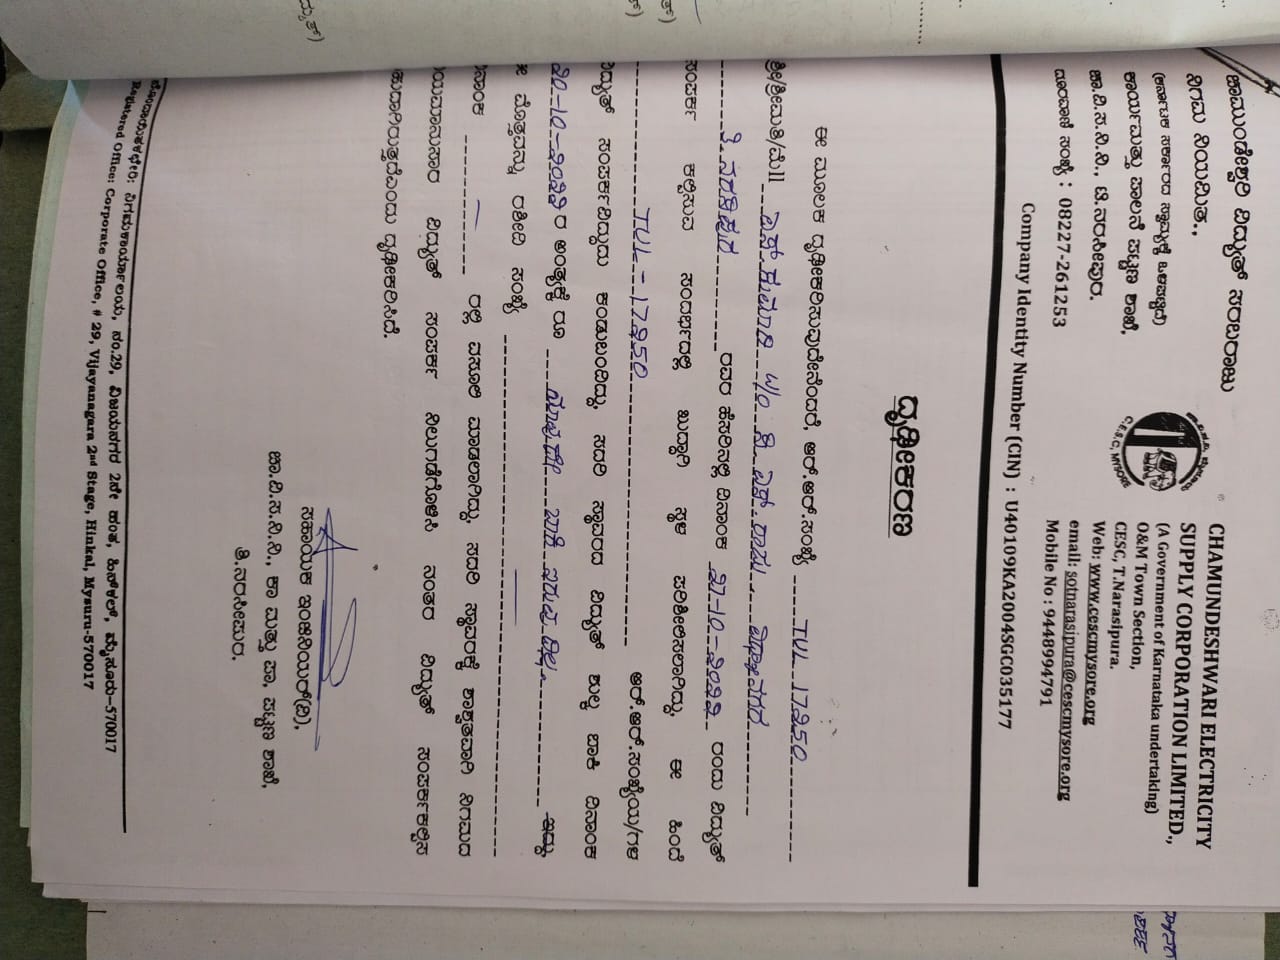 ಚಾಮುಂಡೇಶ್ವರಿ ವಿದ್ಯುತ್ ಸರಬರಾಜು
ನಿಗಮ ನಿಯಮಿತ.,
(ಕರ್ನಾಟಕ ಸರ್ಕಾರದ ಸ್ವಾಮ್ಯಕ್ಕೆ ಒಳಪಟ್ಟಿದೆ)
ಕಾರ್ಯಮತ್ತು ಪಾಲನೆ ಪಟ್ಟಣ ಶಾಖೆ,
ಚಾ.ವಿ.ಸ.ನಿ.ನಿ., ಟಿ.ನರಸೀಪುರ.
ದೂರವಾಣಿ ಸಂಖ್ಯೆ : 08227-261253
C.E.S.C, MYSORE
CHAMUNDESHWARI ELECTRICITY
SUPPLY CORPORATION LIMITED.,
(A Government of Karnataka undertaking)
O&M Town Section,
CESC, T.Narasipura.
Web: www.cescmysore.org
email: sotnarasipura@cescmysore.org
Mobile No : 9448994791
Company Identity Number (CIN) : U40109KA2004SGC035177
ದೃಢೀಕರಣ
ಈ ಮೂಲಕ ದೃಢೀಕರಿಸುವುದೇನೆಂದರೆ, ಆರ್.ಆರ್.ಸಂಖ್ಯೆ TUL 17250
ಶ್ರೀ/ಶ್ರೀಮತಿ/ಮೆ|| ಎಸ್.ಕುಮಾರಿ W/O ಡಿ ಎಸ್. ರಾಮು,
ತಿ ನರಸೀಪುರ ರವರ ಹೆಸರಿನಲ್ಲಿ ದಿನಾಂಕ 21-10-2022 ರಂದು ವಿದ್ಯುತ್
ಸಂಪರ್ಕ ಕಲ್ಪಿಸುವ ಸಂದರ್ಭದಲ್ಲಿ ಖುದ್ದಾಗಿ ಸ್ಥಳ ಪರಿಶೀಲಿಸಲಾಗಿದ್ದು, ಈ ಹಿಂದೆ
TUL - 17250 ಆರ್.ಆರ್.ಸಂಖ್ಯೆಯ/ಗಳ
ವಿದ್ಯುತ್ ಸಂಪರ್ಕವಿದ್ದುದು ಕಂಡುಬಂದಿದ್ದು, ಸದರಿ ಸ್ಥಾವರದ ವಿದ್ಯುತ್ ಶುಲ್ಕ ಬಾಕಿ ದಿನಾಂಕ
20-10-2022 ರ ಅಂತ್ಯಕ್ಕೆ ರೂ ಯಾವುದೇ ಬಾಕಿ ಇರುವುದಿಲ್ಲ. ಇದ್ದು,
ಈ ಮೊತ್ತವನ್ನು ರಶೀದಿ ಸಂಖ್ಯೆ
ದಿನಾಂಕ ರಲ್ಲಿ ವಸೂಲಿ ಮಾಡಲಾಗಿದ್ದು, ಸದರಿ ಸ್ಥಾವರಕ್ಕೆ ಶಾಶ್ವತವಾಗಿ ನಿಗಮದ
ನಿಯಮಾನುಸಾರ ವಿದ್ಯುತ್ ಸಂಪರ್ಕ ನಿಲುಗಡೆಗೊಳಿಸಿ ನಂತರ ವಿದ್ಯುತ್ ಸಂಪರ್ಕಕಲ್ಪಿಸ
ಬಹುದಾಗಿರುತ್ತದೆಂದು ದೃಢೀಕರಿಸಿದೆ.
ಸಹಾಯಕ ಇಂಜಿನಿಯರ್(ವಿ),
ಚಾ.ವಿ.ಸ.ನಿ.ನಿ., ಕಾ ಮತ್ತು ಪಾ, ಪಟ್ಟಣ ಶಾಖೆ,
ತಿ.ನರಸೀಪುರ.
ನೊಂದಾಯಿತಕಛೇರಿ: ನಿಗಮಕಾರ್ಯಾಲಯ, ನಂ.29, ವಿಜಯನಗರ 2ನೇ ಹಂತ, ಹಿನ್‌ಕಲ್, ಮೈಸೂರು-570017
Registered Office: Corporate Office, # 29, Vijayanagara 2nd Stage, Hinkal, Mysuru-570017